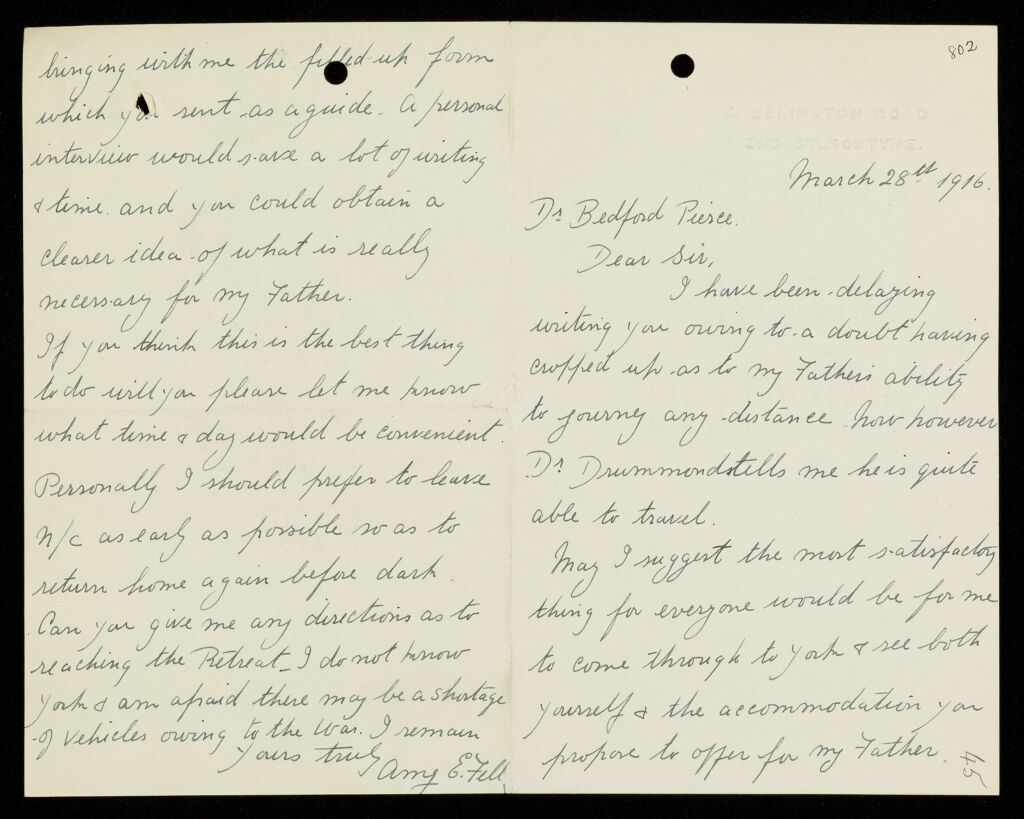 802
ESLINGTON ROAD,
NEWCASTLE ON TYNE.
March 28th 1916.
Dr Bedford Pierce.
Dear Sir,
I have been delaying
writing you owing to a doubt having
cropped up as to my Father's ability
to journey any distance. Now however
Dr Drummond tells me he is quite
able to travel.
May I suggest the most satisfactory
thing for everyone would be for me
to come through to York & see both
yourself & the accommodation you
propose to offer for my Father.
45
bringing with me the filled-up form
which you sent as a guide. A personal
interview would save a lot of writing
& time. and you could obtain a
clearer idea of what is really
necessary for my Father.
If you think this is the best thing
to do will you please let me know
what time & day would be convenient.
Personally I should prefer to leave
N/c as early as possible so as to
return home again before dark.
Can you give me any directions as to
reaching the Retreat_ I do not know
York & am afraid there may be a shortage
of vehicles owing to the War. I remain
Yours truly
Amy E. Fell